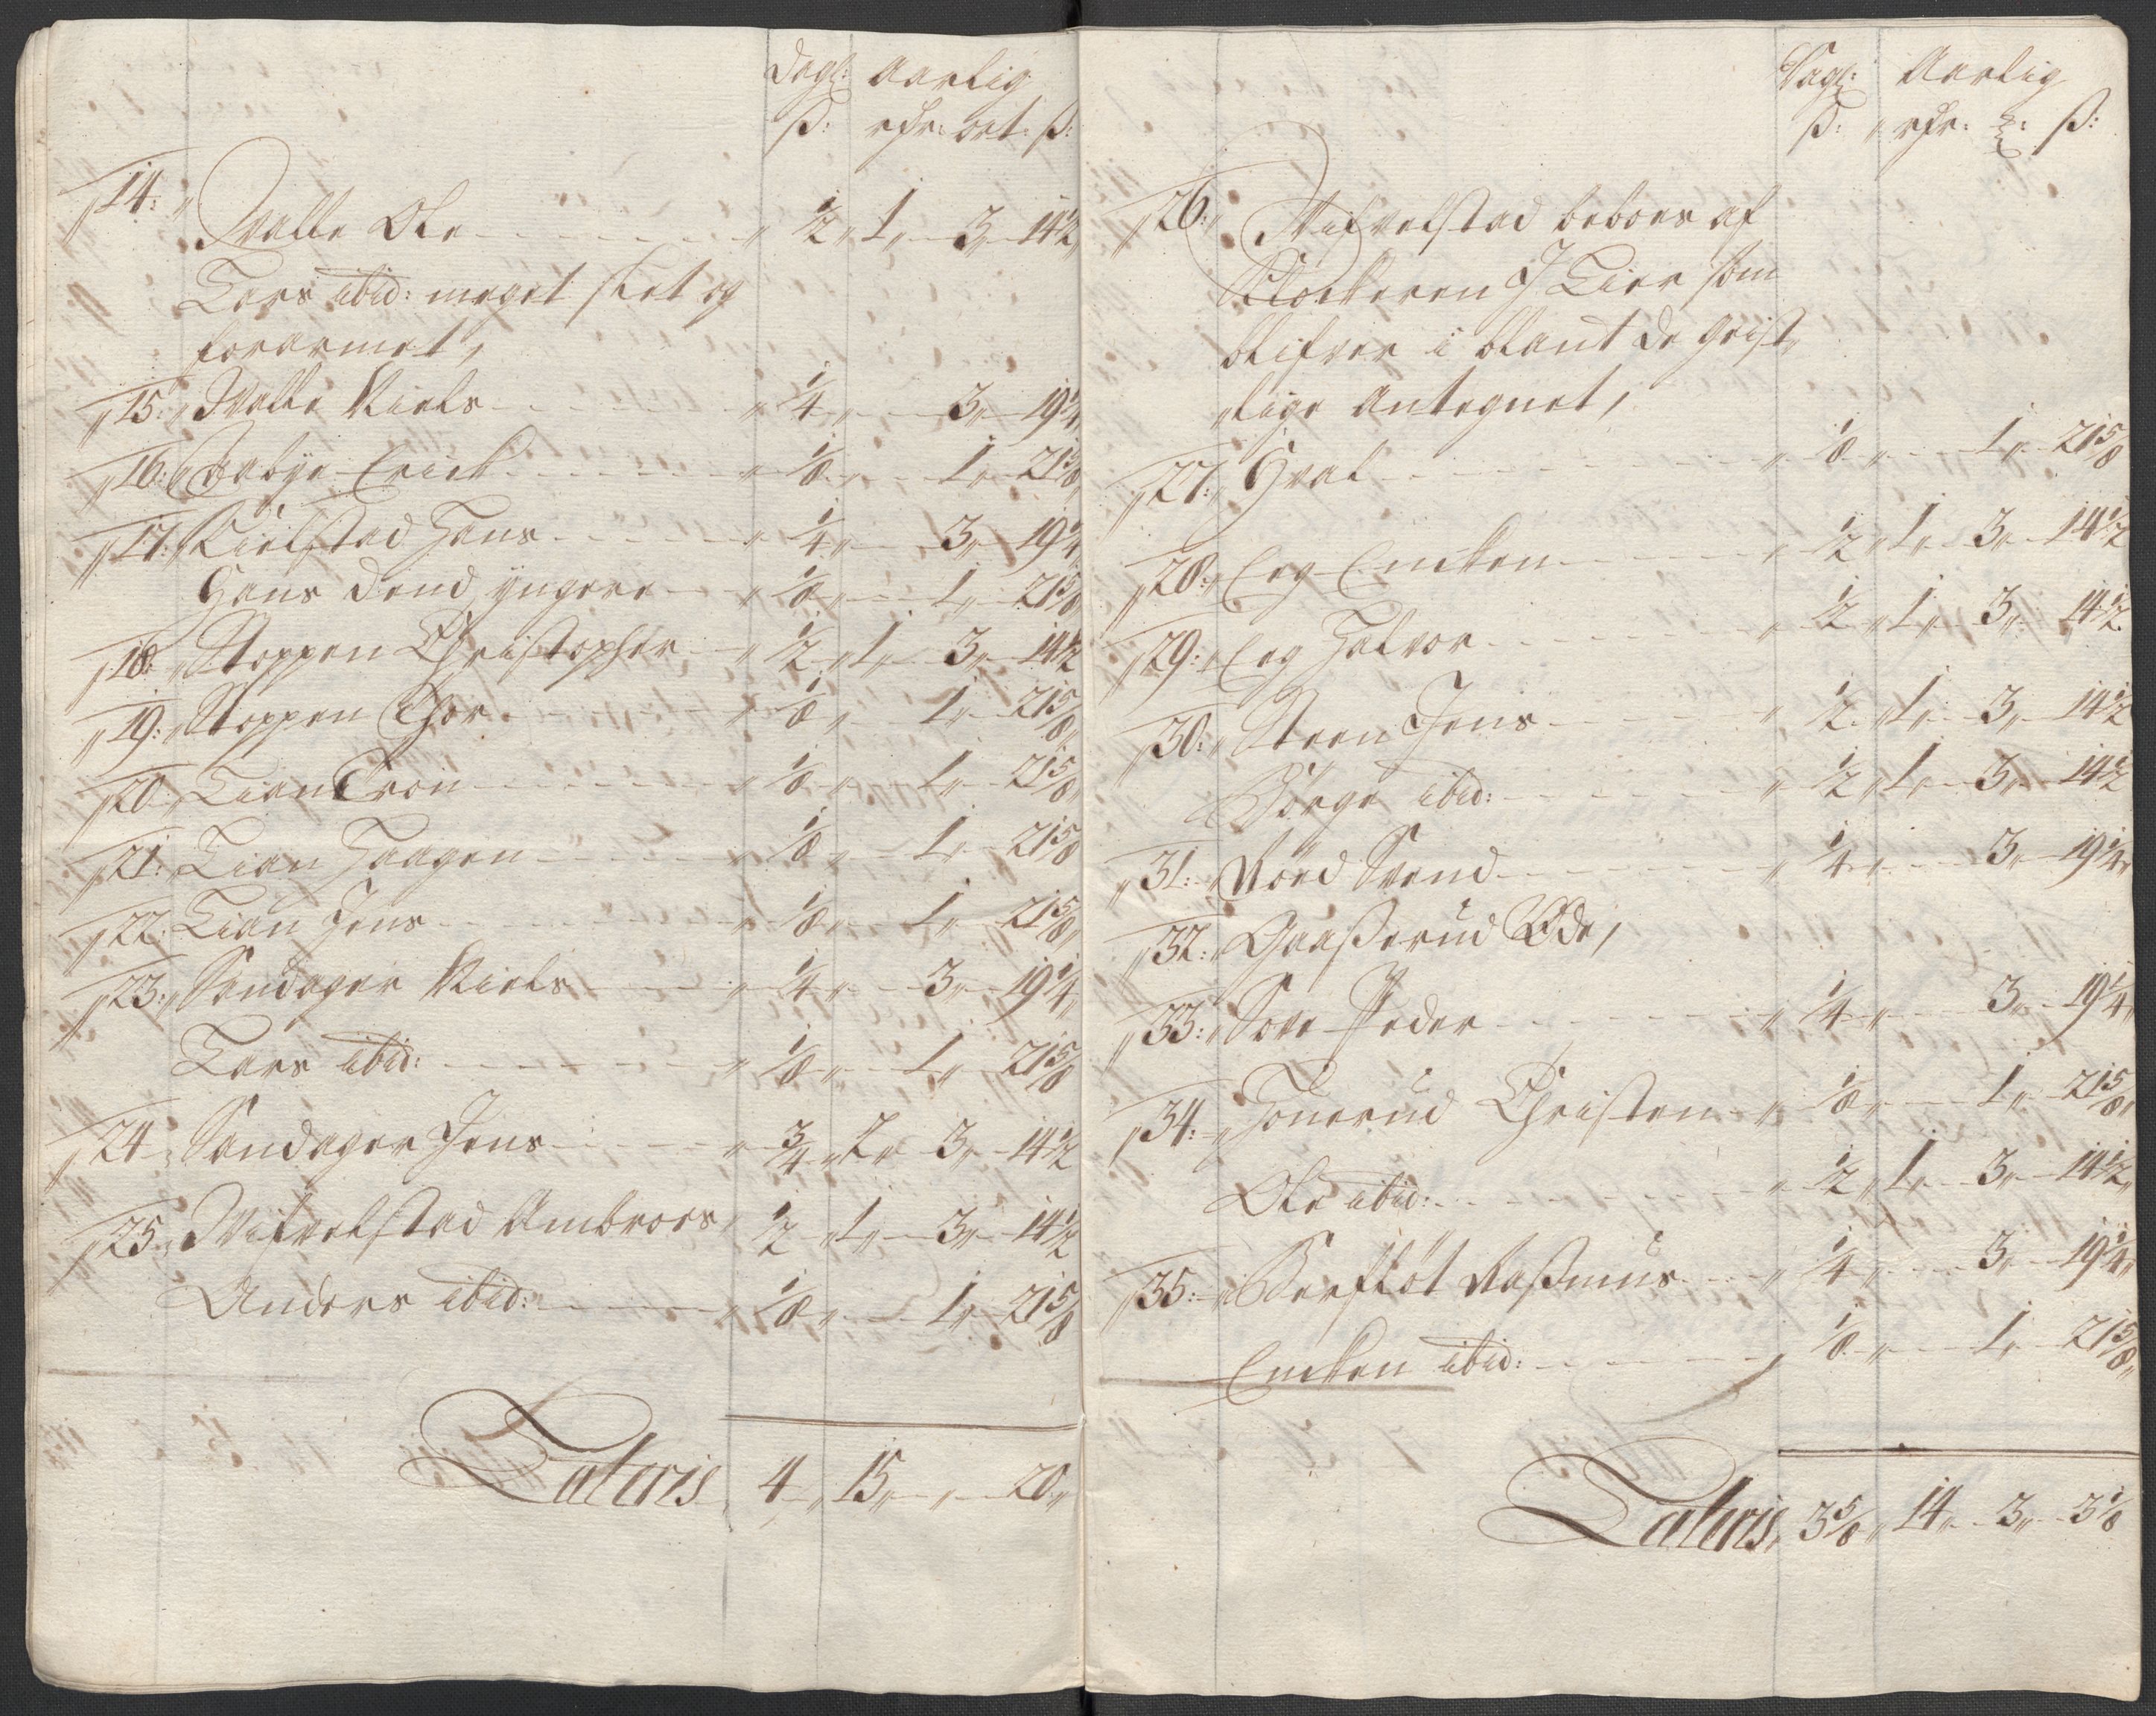 Dagl: Aarlig
ß: rdr: ort: ß:
14: Walle Ole 1/2 1 3 14 1/2
Lars ibid: meget slet og
forarmet,
15: Walle Niels 1/4 3 19 1/4
16: Erick 1/8 1 21 5/8
17: Kielstad Hans 1/4 3 19 1/4
Hans dend yngere 1/8 1 21 5/8
18: Stoppen Christopher 1/2 1 3 14 1/2
19: Stoppen Thor 1/8 1 21 5/8
20 Lian Tron 1/8 1 21 5/8
21: Lian Haagen 1/8 1 21 5/8
22: Lian Jens 1/8 1 21 5/8
23: Sandager Niels 1/4 3 19 1/4
Lars ibid: 1/8 1 21 5/8
24 Sandager Jens 3/4 2 3 14 1/2
25 Wifvelstad Ambroes 1/2 1 3 14 1/2
Anders ibid: 1/8 1 21 5/8
Lateris 4 15 20
Dagl: Aarlig
ß: rdr: ß:
26: Wifvelstad beboes af
Klockeren J Lier som
blifver i blant de Geist
lige Antegnet,
27: Hval 1/8 1 21 5/8
28: Eeg Encken 1/2 1 3 14 1/2
29: Eeg Halvor 1/2 1 3 14 1/2
30: Steen Jens 1/2 1 3 14 1/2
Børge ibid: 1/2 1 3 14 1/2
31: Svend 1/4 3 19 1/4
32: Gaaßerud Øde,
33: Peder 1/4 3 19 1/4
34: Tonerud Christen 1/8 1 21 5/8
Ole ibid: 1/2 1 3 14 1/2
35: Raßmus 1/4 3 19 1/4
Encken ibid: 1/8 1 21 5/8
Lateris 3 5/8 14 3 3 1/8